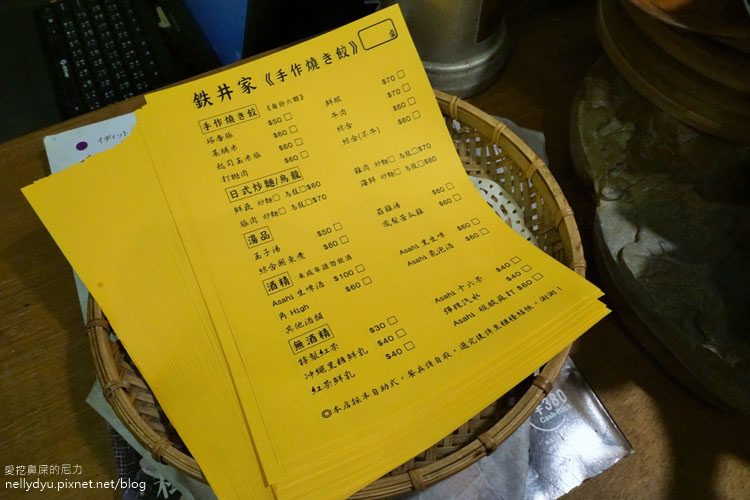 鉄井家《手作燒き餃》
手作燒き餃 《每份六顆》
塔香豬 $50 鮮蝦 $70
菜脯米 $60 牛肉 $70
起司玉米豬 $60 綜合 $60
打拋肉 $60 綜合(不牛) $60
日式炒麵/烏龍
鮮蔬 炒麵 烏龍 $60 雞肉 炒麵 烏龍 $70
豚肉 炒麵 烏龍 $70 海鮮 炒麵 烏龍 $80
湯品
玉子湯 $50 菇雞湯 $60
綜合關東煮 $80 鳳梨苦瓜雞 $60
酒精 未成年請勿飲酒
Asahi 生啤酒 $100 Asahi 量生啤 $60
角 High $60 Asahi 氣泡酒 $60
其他酒類
無酒精
特製紅茶 $30 Asahi 十六茶 $40
沖繩黑糖鮮乳 $40 彈珠汽水 $40
紅茶鮮乳 $40 Asahi 蘇打 $60
◎本店採半自助式,餐具請自取,選完後請至櫃檯結帳,謝謝!
イディット
¥380
愛挖鼻屎的尼力
nellydyu.pixnet.net/blog